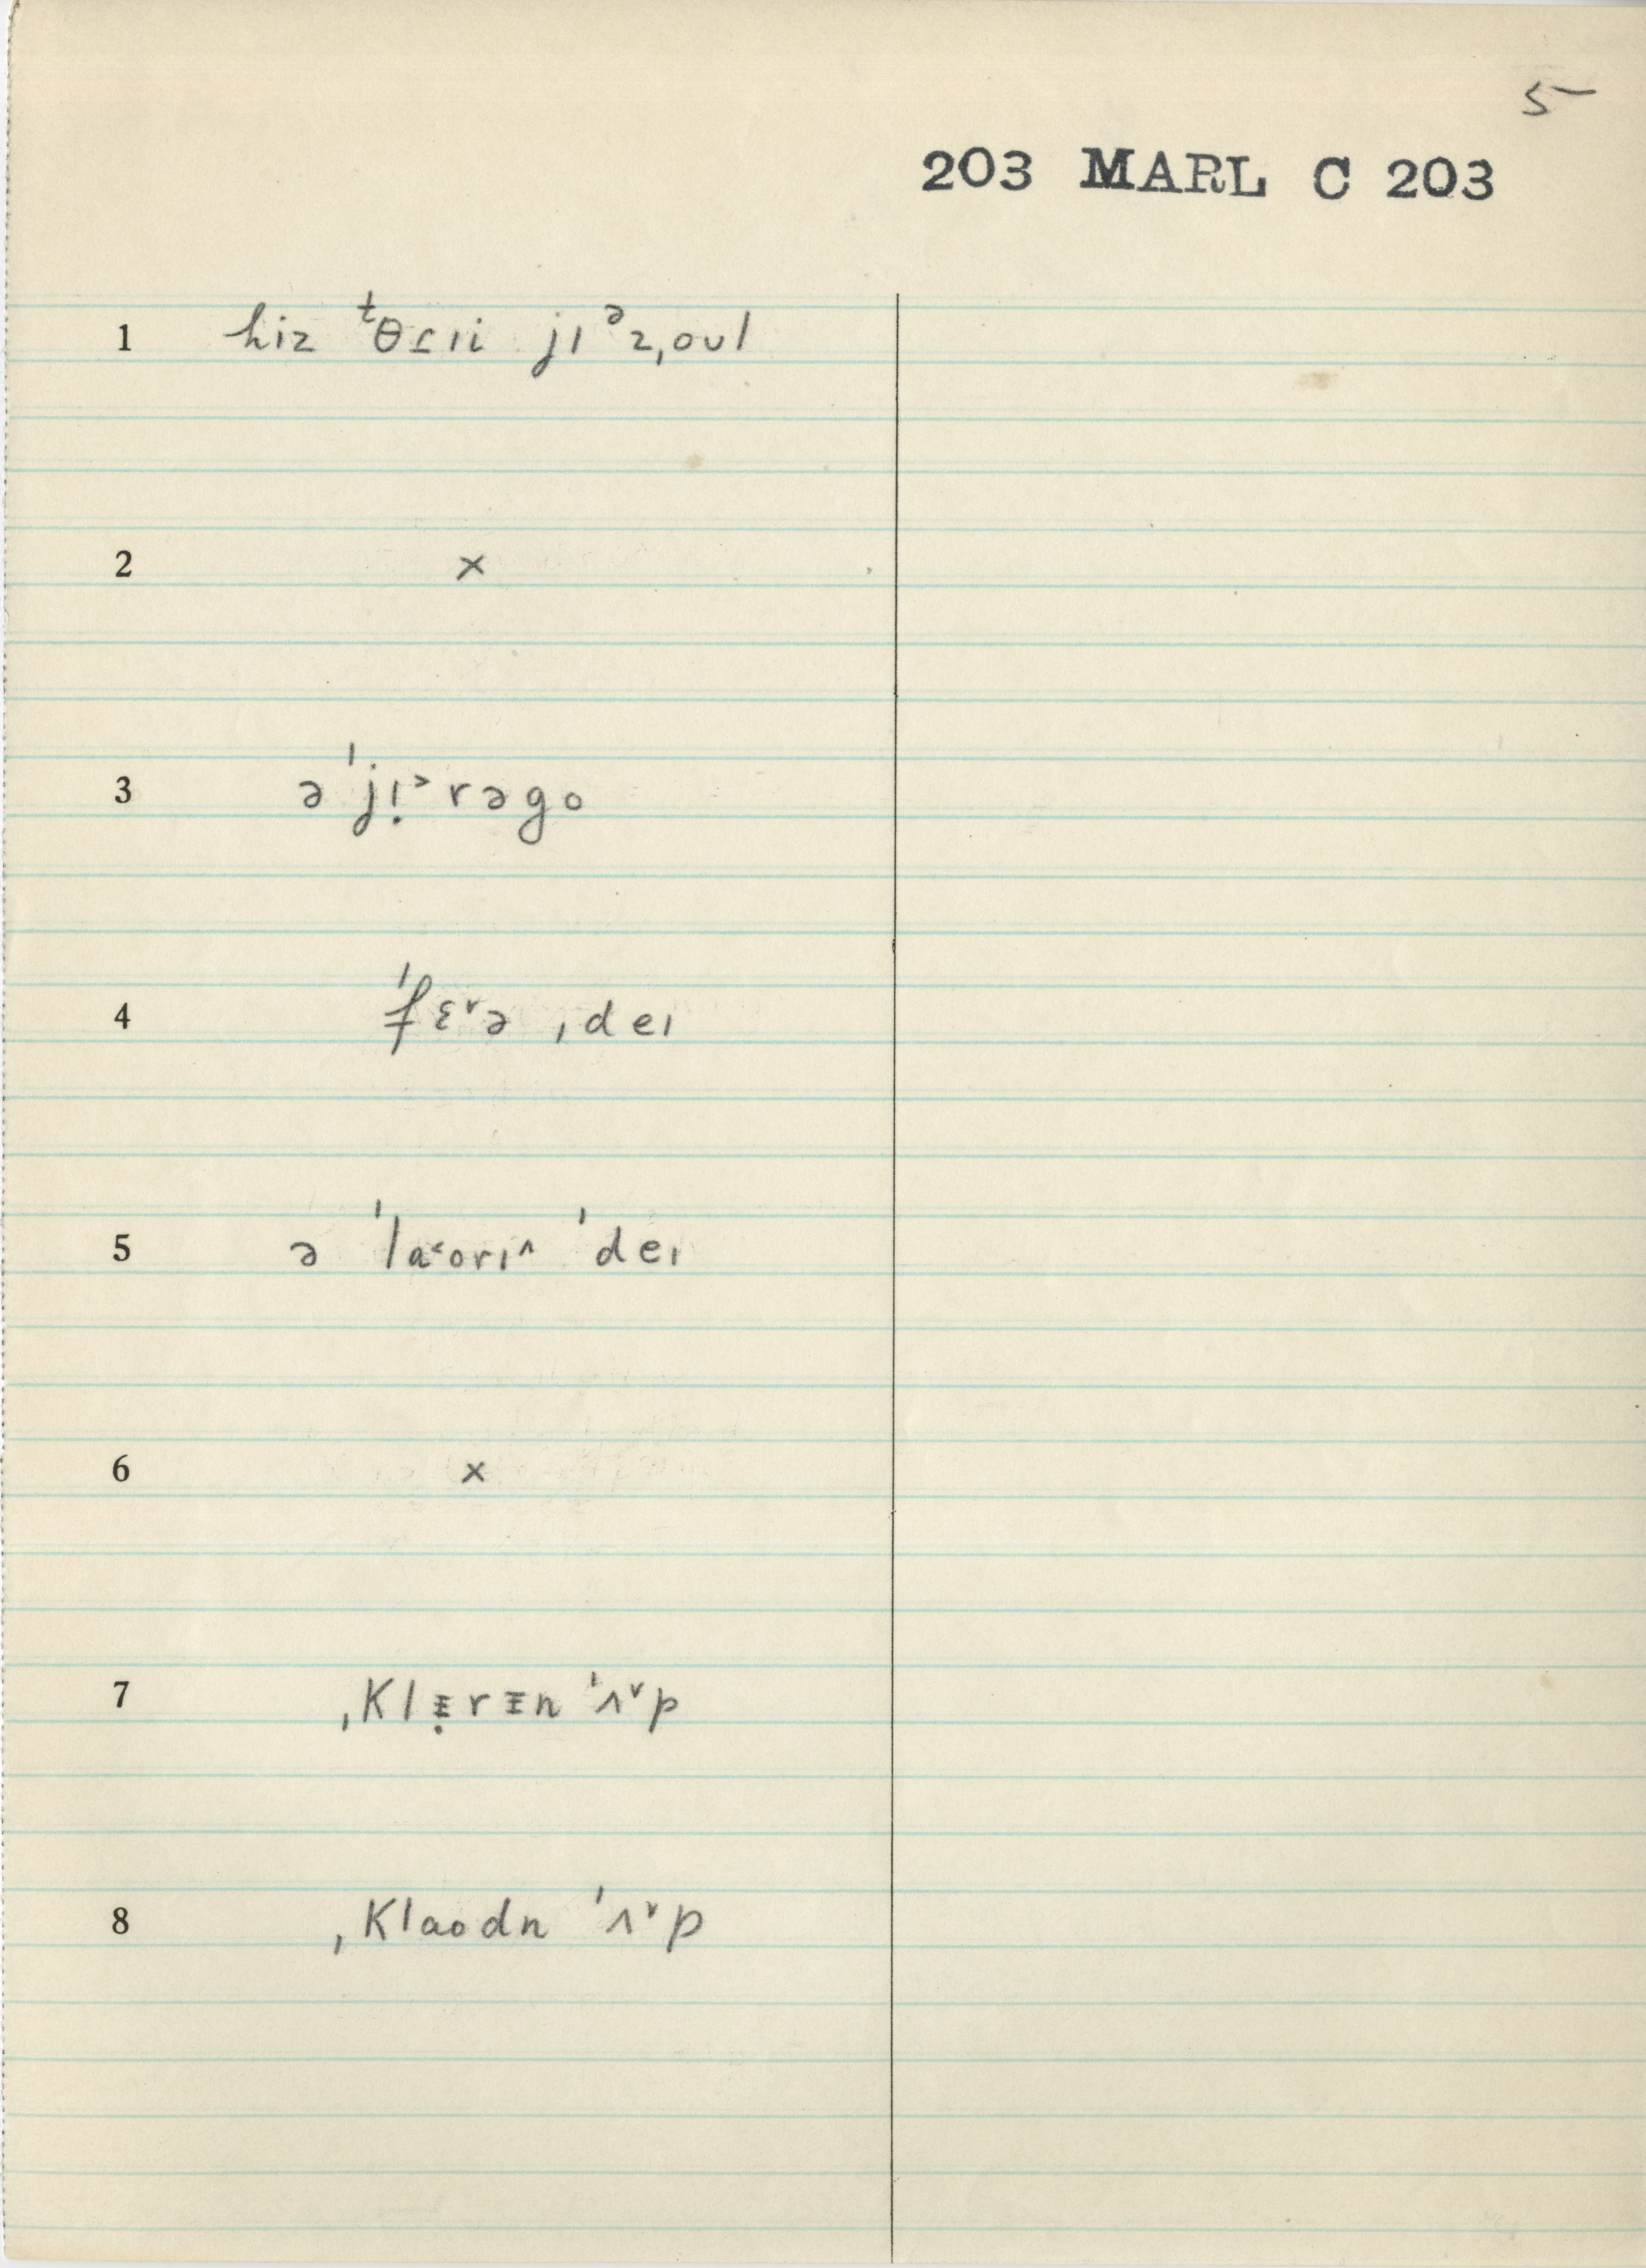 5
203 MARL C 203
1 hiz ᵗθɾɪi jɪᵊz ˌoʊl
2 ×
3 ə ˈjɪ̣˃rəgo
4 ˈfɛ˅ə ˌdeɪ
5 ə ˈla˂ᴜrɪ˄ ˈdeɪ
6 ×
7 ˌKlɪ̵̣rɪ̵n ˈʌ˅p
8 ˌKlaᴜdn ˈʌ˅p